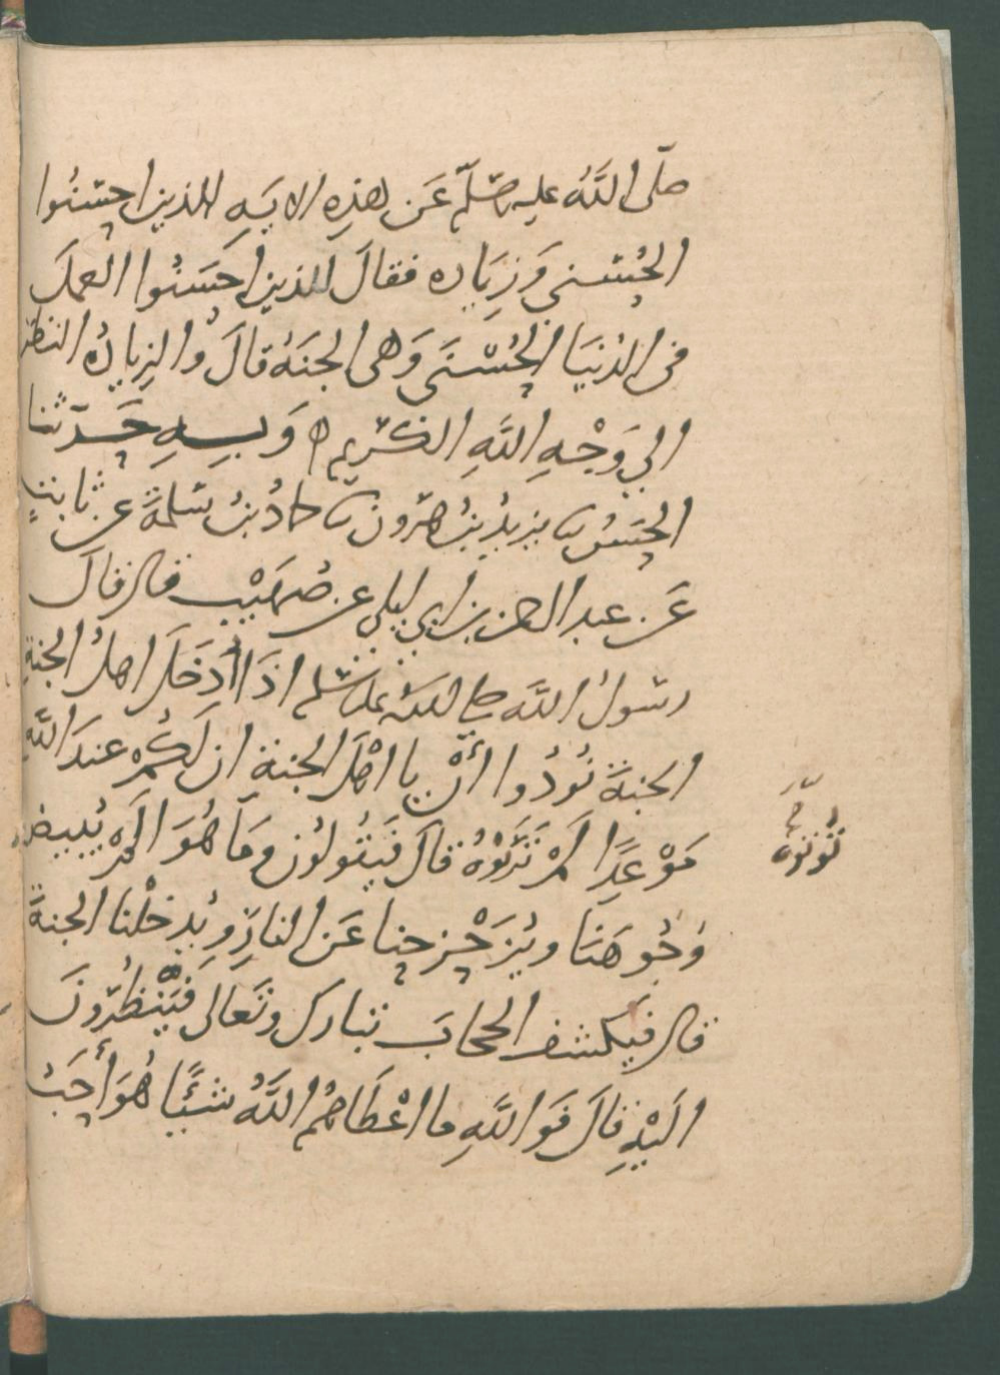 صلى اللَّه عليه وسلم عَن هذِهِ الايَهِ للذين احسَنُوا
الحُسْنى وَزِيَاده فقالَ للذين احَسَنُوا العملَ
فى الدُنيَا الحُسْنَى وَهى الجنَهُ قالَ والزِيادُه النظَر
الى وَجْهِ اللَّهِ الكَرِيم ه وَبِهِ حَدّثنا
الحَسَنُ نا يزيدُ بنُ هَرون نا حمادُ بنُ سَلمةَ عن ثابتٍ
عَن عبد الرحمن بن ابى ليلى عن صُهَيْبٍ قال قالَ
رسولُ اللَّه صلى الله عليه وسلم اذَا اُدخَلَ اهلُ الجنةِ
الجنةَ نُودُوا أنْ يا اهْلَ الجنةِ ان لَكُمْ عندَ اللَّهِ
مَوْعِدًا لَمْ تَرَوْهُ قالَ فَيَقُولُون ومَا هُوَ المْ يُبيض
وُجُوهَنَا ويُزَحْزِحنا عَن النارِ ويُدخلْنا الجنةَ
قال فَيكشفُ الحجابَ تباركَ وتَعَالى فَيَنْظُرُونَ
الَيْهِ قالَ فَوَاللَّهِ ما اعْطَاهمُ اللَّهُ شَيْئًا هُوَ أَحَبُ
تُوَنْوهُ